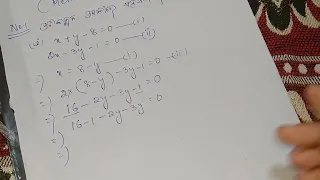 No:1
x + y - 8 = 0 —(i)
2x - 3y - 1 = 0 —(ii)
⇒ x = 8 - y —(iii)
⇒ 2×(8 - y) - 3y - 1 = 0
⇒ 16 - 2y - 3y - 1 = 0
⇒ 16 - 1 - 2y - 3y = 0
⇒
⇒